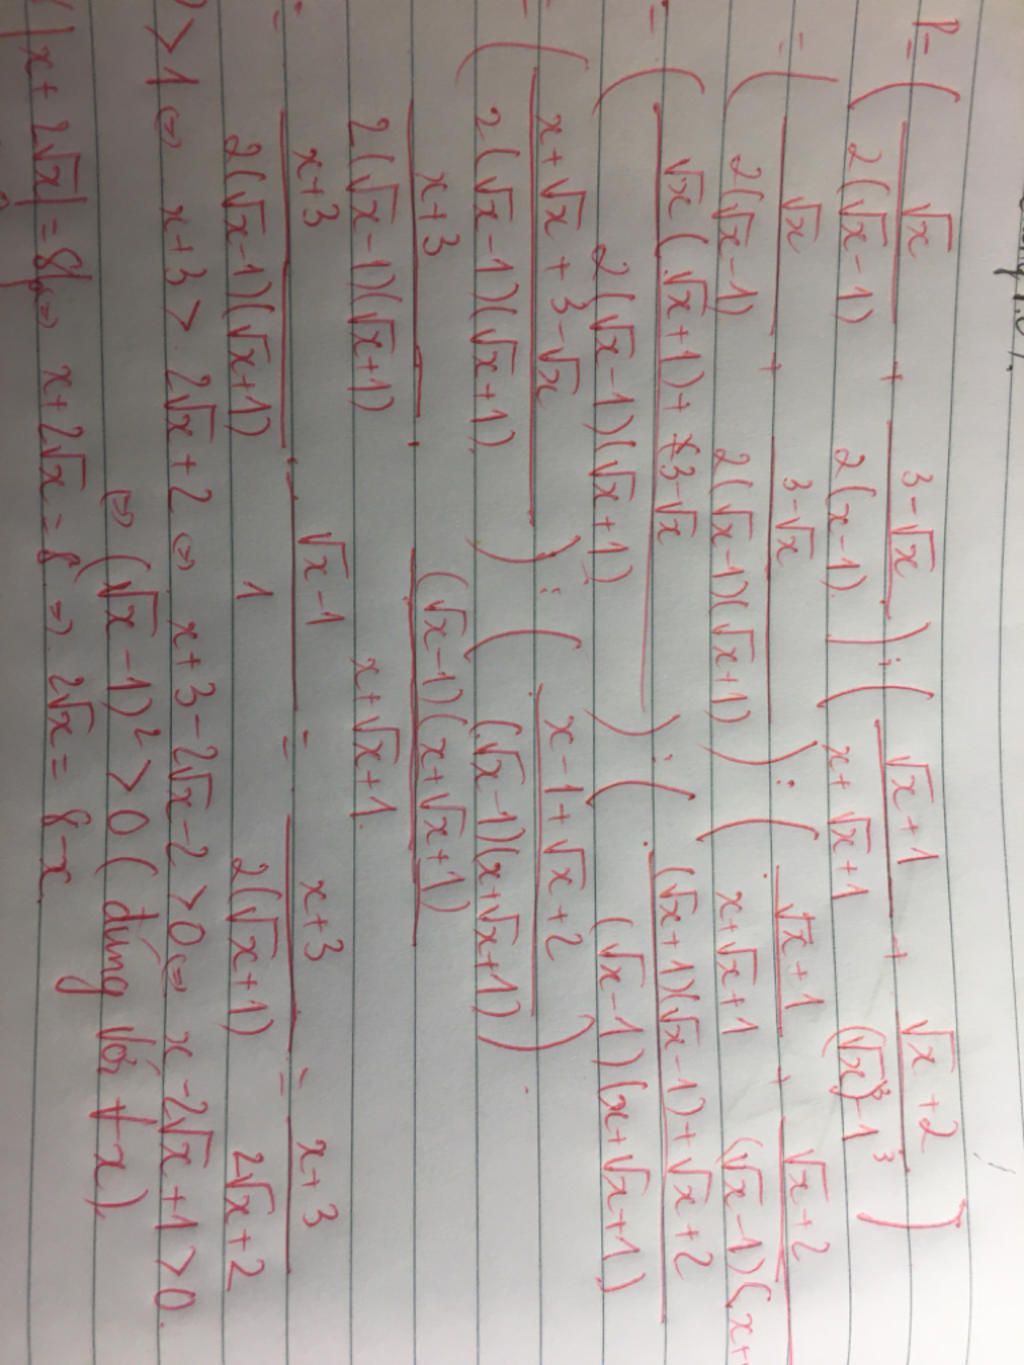 P = ( √x / 2(√x-1) + 3-√x / 2(x-1) ) : ( √x+1 / x+√x+1 + √x+2 / (√x)³-1³ )
= ( √x / 2(√x-1) + 3-√x / 2(√x-1)(√x+1) ) : ( √x+1 / x+√x+1 + √x+2 / (√x-1)(x+
= ( √x(√x+1)+3-√x / 2(√x-1)(√x+1) ) : ( (√x+1)(√x-1)+√x+2 / (√x-1)(x+√x+1)
= ( x+√x+3-√x / 2(√x-1)(√x+1) ) : ( x-1+√x+2 / (√x-1)(x+√x+1) )
= x+3 / 2(√x-1)(√x+1) . (√x-1)(x+√x+1) / x+√x+1
= x+3 / 2(√x-1)(√x+1) . √x-1 / 1 = x+3 / 2(√x+1) = x+3 / 2√x+2
> 1 ⇔ x+3 > 2√x+2 ⇔ x+3-2√x-2 > 0 ⇔ x-2√x+1 > 0
⇔ (√x-1)² > 0 ( đúng với ∀x)
| x+2√x | = 8 ⇔ x+2√x = 8 ⇒ 2√x = 8-x